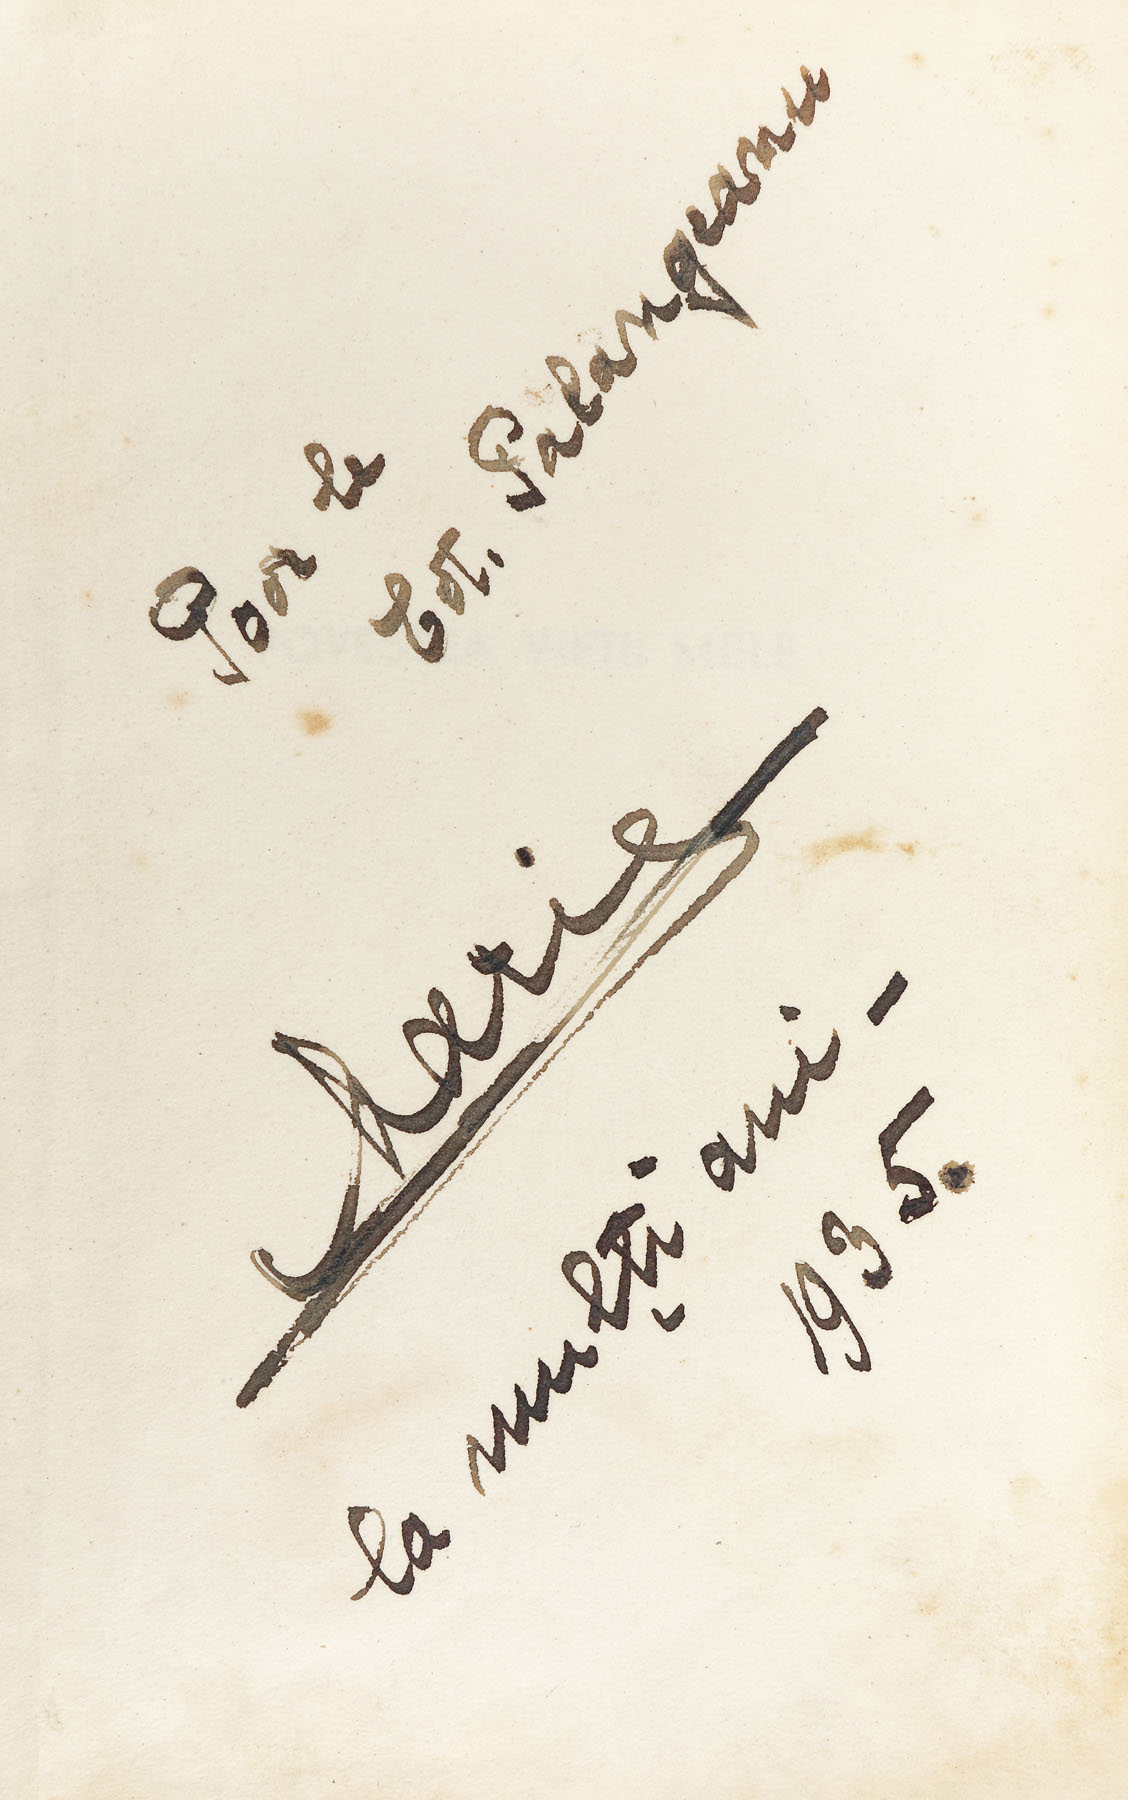 Pour le
Col. Palangeanu
Marie
la mulți ani –
1935.